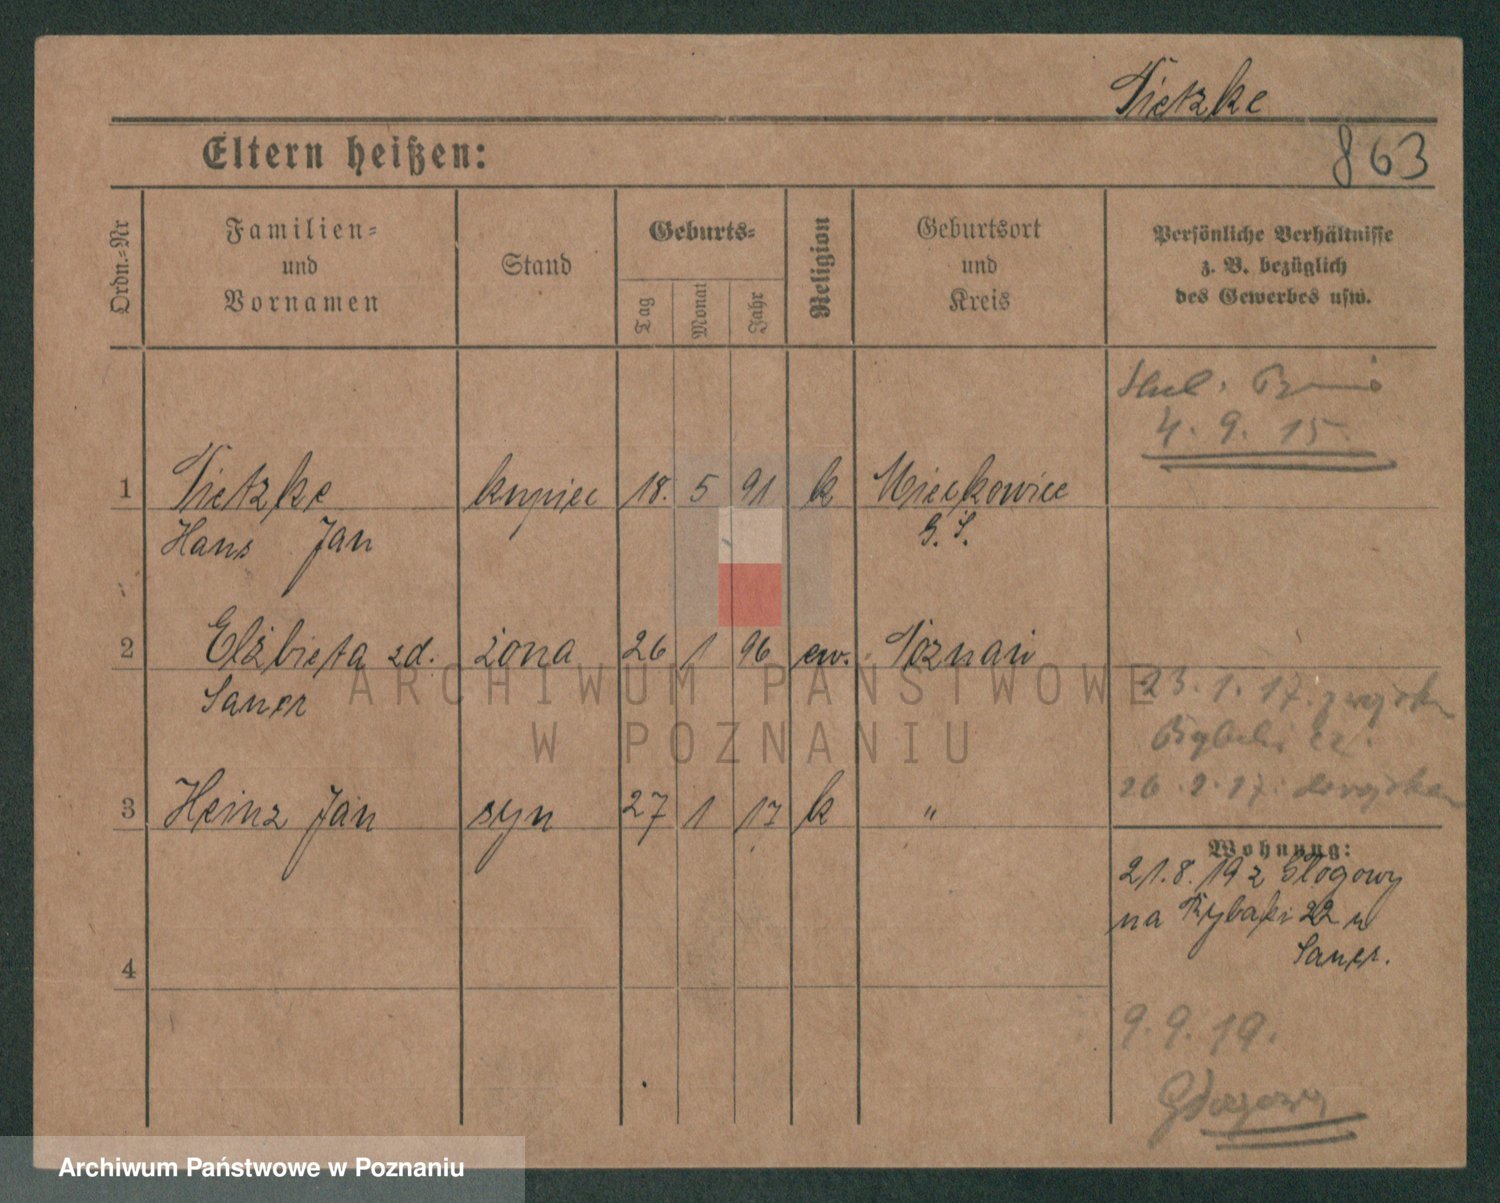 Tietzke
Eltern heißen:
863
Ordn.-Nr
Familien-
und
Vornamen
Stand
Geburts-
Tag
Monat
Jahr
Religion
Geburtsort
und
Kreis
Persönliche Verhältnisse
z. B. bezüglich
des Gewerbes usw.
4. 9. 15
1 Tietzke kupiec 18. 5 91 k Mieckowice
Hans Jan G. S.
2 Elżbieta zd. żona 26 1 96 ew. Poznań
Sauer
23. 1. 17.
26. 2. 17.
3 Heinz Jan syn 27 1 17 k "
Wohnung:
21. 8. 19 z Głogowy
na Rybaki 22 u
Sauer.
4
9. 9. 19.
ARCHIWUM PAŃSTWOWE
W POZNANIU
Archiwum Państwowe w Poznaniu